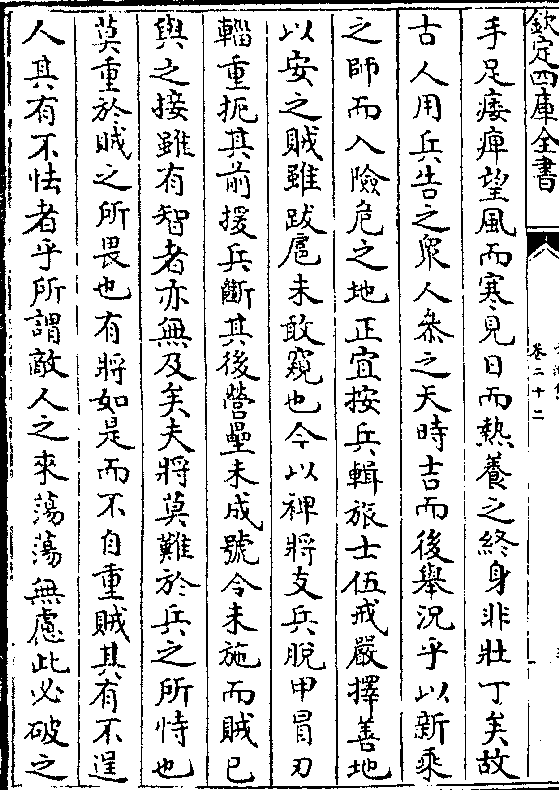 欽定四庫全書
卷二十二
手足痿痺望風而寒見日而熱養之終身非壯丁矣故
古人用兵告之衆人叅之天時吉而後舉況乎以新乘
之師而入險危之地正宜按兵輯旅士伍戒嚴擇善地
以安之賊雖跋扈未敢窺也今以裨將支兵脫甲冒刃
輜重扼其前援兵斷其後營壘未成號令未施而賊已
與之接雖有智者亦無及矣夫將莫難於兵之所恃也
莫重於賊之所畏也有將如是而不自重賊其有不逞
人其有不怯者乎所謂敵人之來蕩蕩無慮此必破之